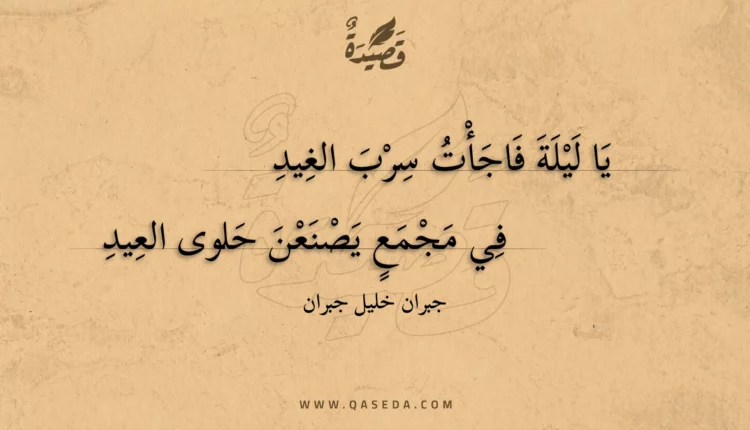 قَصِيْدَةٌ
يَا لَيْلَةَ فَاجَأْتُ سِرْبَ الغِيدِ
فِي مَجْمَعٍ يَصْنَعْنَ حَلوى العِيدِ
جبران خليل جبران
WWW.QASEDA.COM